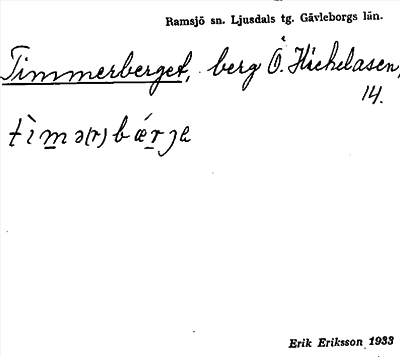 Ramsjö sn. Ljusdals tg. Gävleborgs län.
Timmerberget, berg Ö. Hickelåsen,
14.
tìmə(r)bǽrjɐ
Erik Eriksson 1933